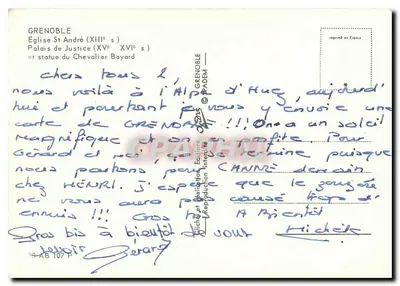 GRENOBLE
Église St André (XIIIe s)
Palais de Justice (XVe XVIe s)
et statue du Chevalier Bayard
imprimé en France
chers tous 2,
nous voilà à l'Alpe d'Huez, aujourd'
hui et pourtant je vous y envoie une
carte de GRENOBLE !!! On a un soleil
magnifique et on en profite. Pour
Gérard et moi se termine puisque
nous partons pour CANNE demain
chez HENRI. J'espère que le
ne vous aura pas causé trop d'
ennuis !!! Gros A Bientôt
Michèle
Gros bis à bientôt de vous
revoir Gérard
AB 107 P
GRENOBLE
© SPADEM
Reproduction interdite